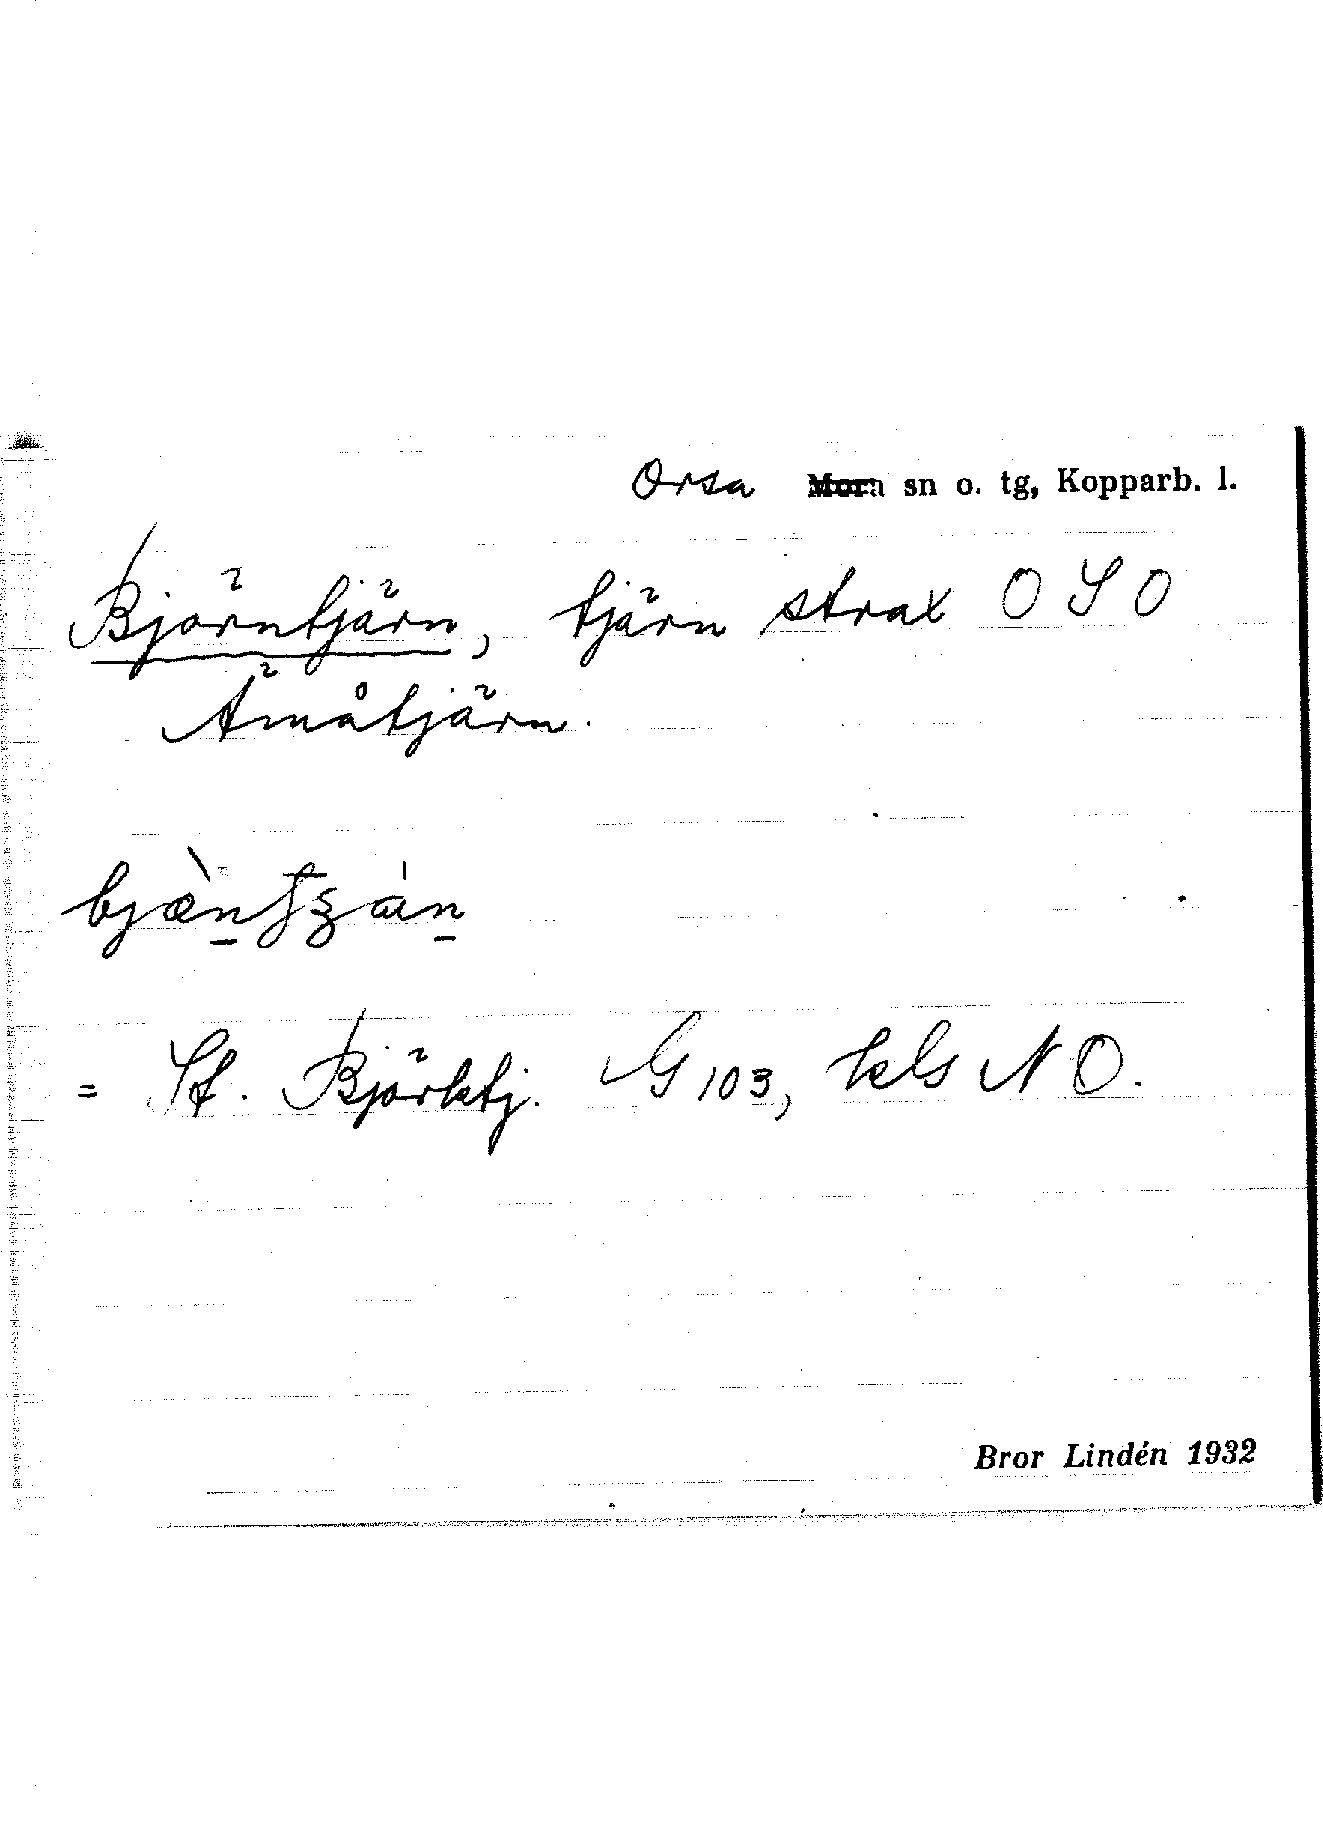 Orsa Mora sn o. tg, Kopparb. l.
Björntjärn, tjärn strax O S O
Ämåtjärn.
= St. Björktj. G 103, kls N O.
Bror Lindén 1932